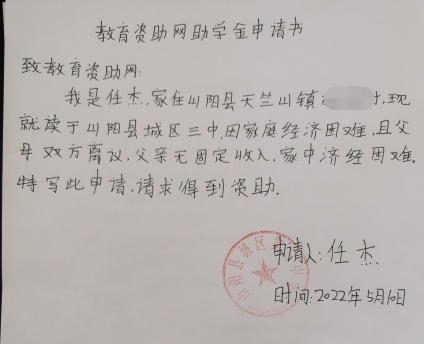 教育资助网助学金申请书
致教育资助网:
我是任杰,家住山阳县天兰山镇,现
就读于山阳县城区三中,因家庭经济困难,且父
母双方离议,父亲无固定收入,家中济经困难.
特写此申请,请求得到资助.
山阳县城区
申请人:任杰
时间:2022年5月10日